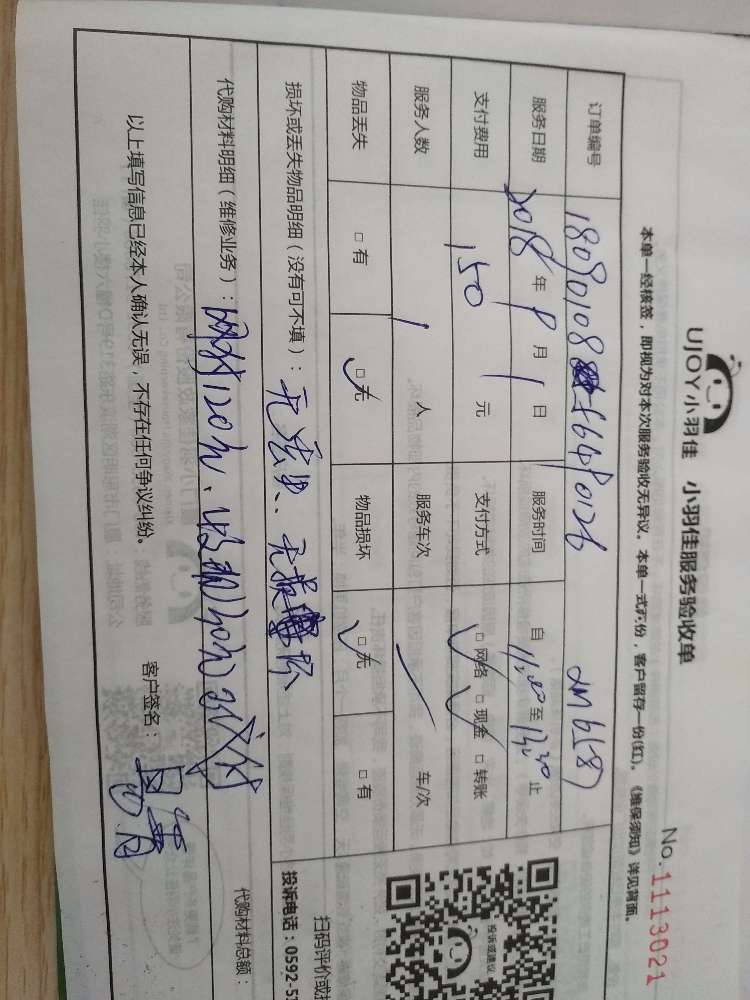 UJOY小羽佳 小羽佳服务验收单
No.1113021
本单一经核签，即视为对本次服务验收无异议。本单一式两份，客户留存一份(红)。《维保须知》详见背面。
订单编号
服务日期 2018年8月1日 服务时间 自11:00至13:30止
支付费用 150元 支付方式 □网络 □现金 □转账
服务人数 1人 服务车次 车/次
物品丢失 □有 □无 物品损坏 □无 □有
损坏或丢失物品明细（没有可不填）：无丢失、无损坏
代购材料明细（维修业务）：网付120元、收现30元 代购材料总额：
以上填写信息已经本人确认无误，不存在任何争议纠纷。 客户签名：
投诉或建议
扫码评价或投
投诉电话：0592-5